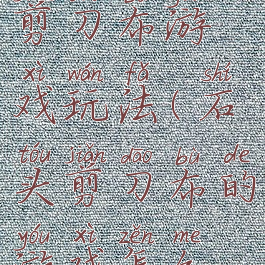 剪刀布游
xì wán fǎ shí
戏玩法(石
tóu jiǎn dāo bù de
头剪刀布的
yóu xì zěn me
游戏怎么